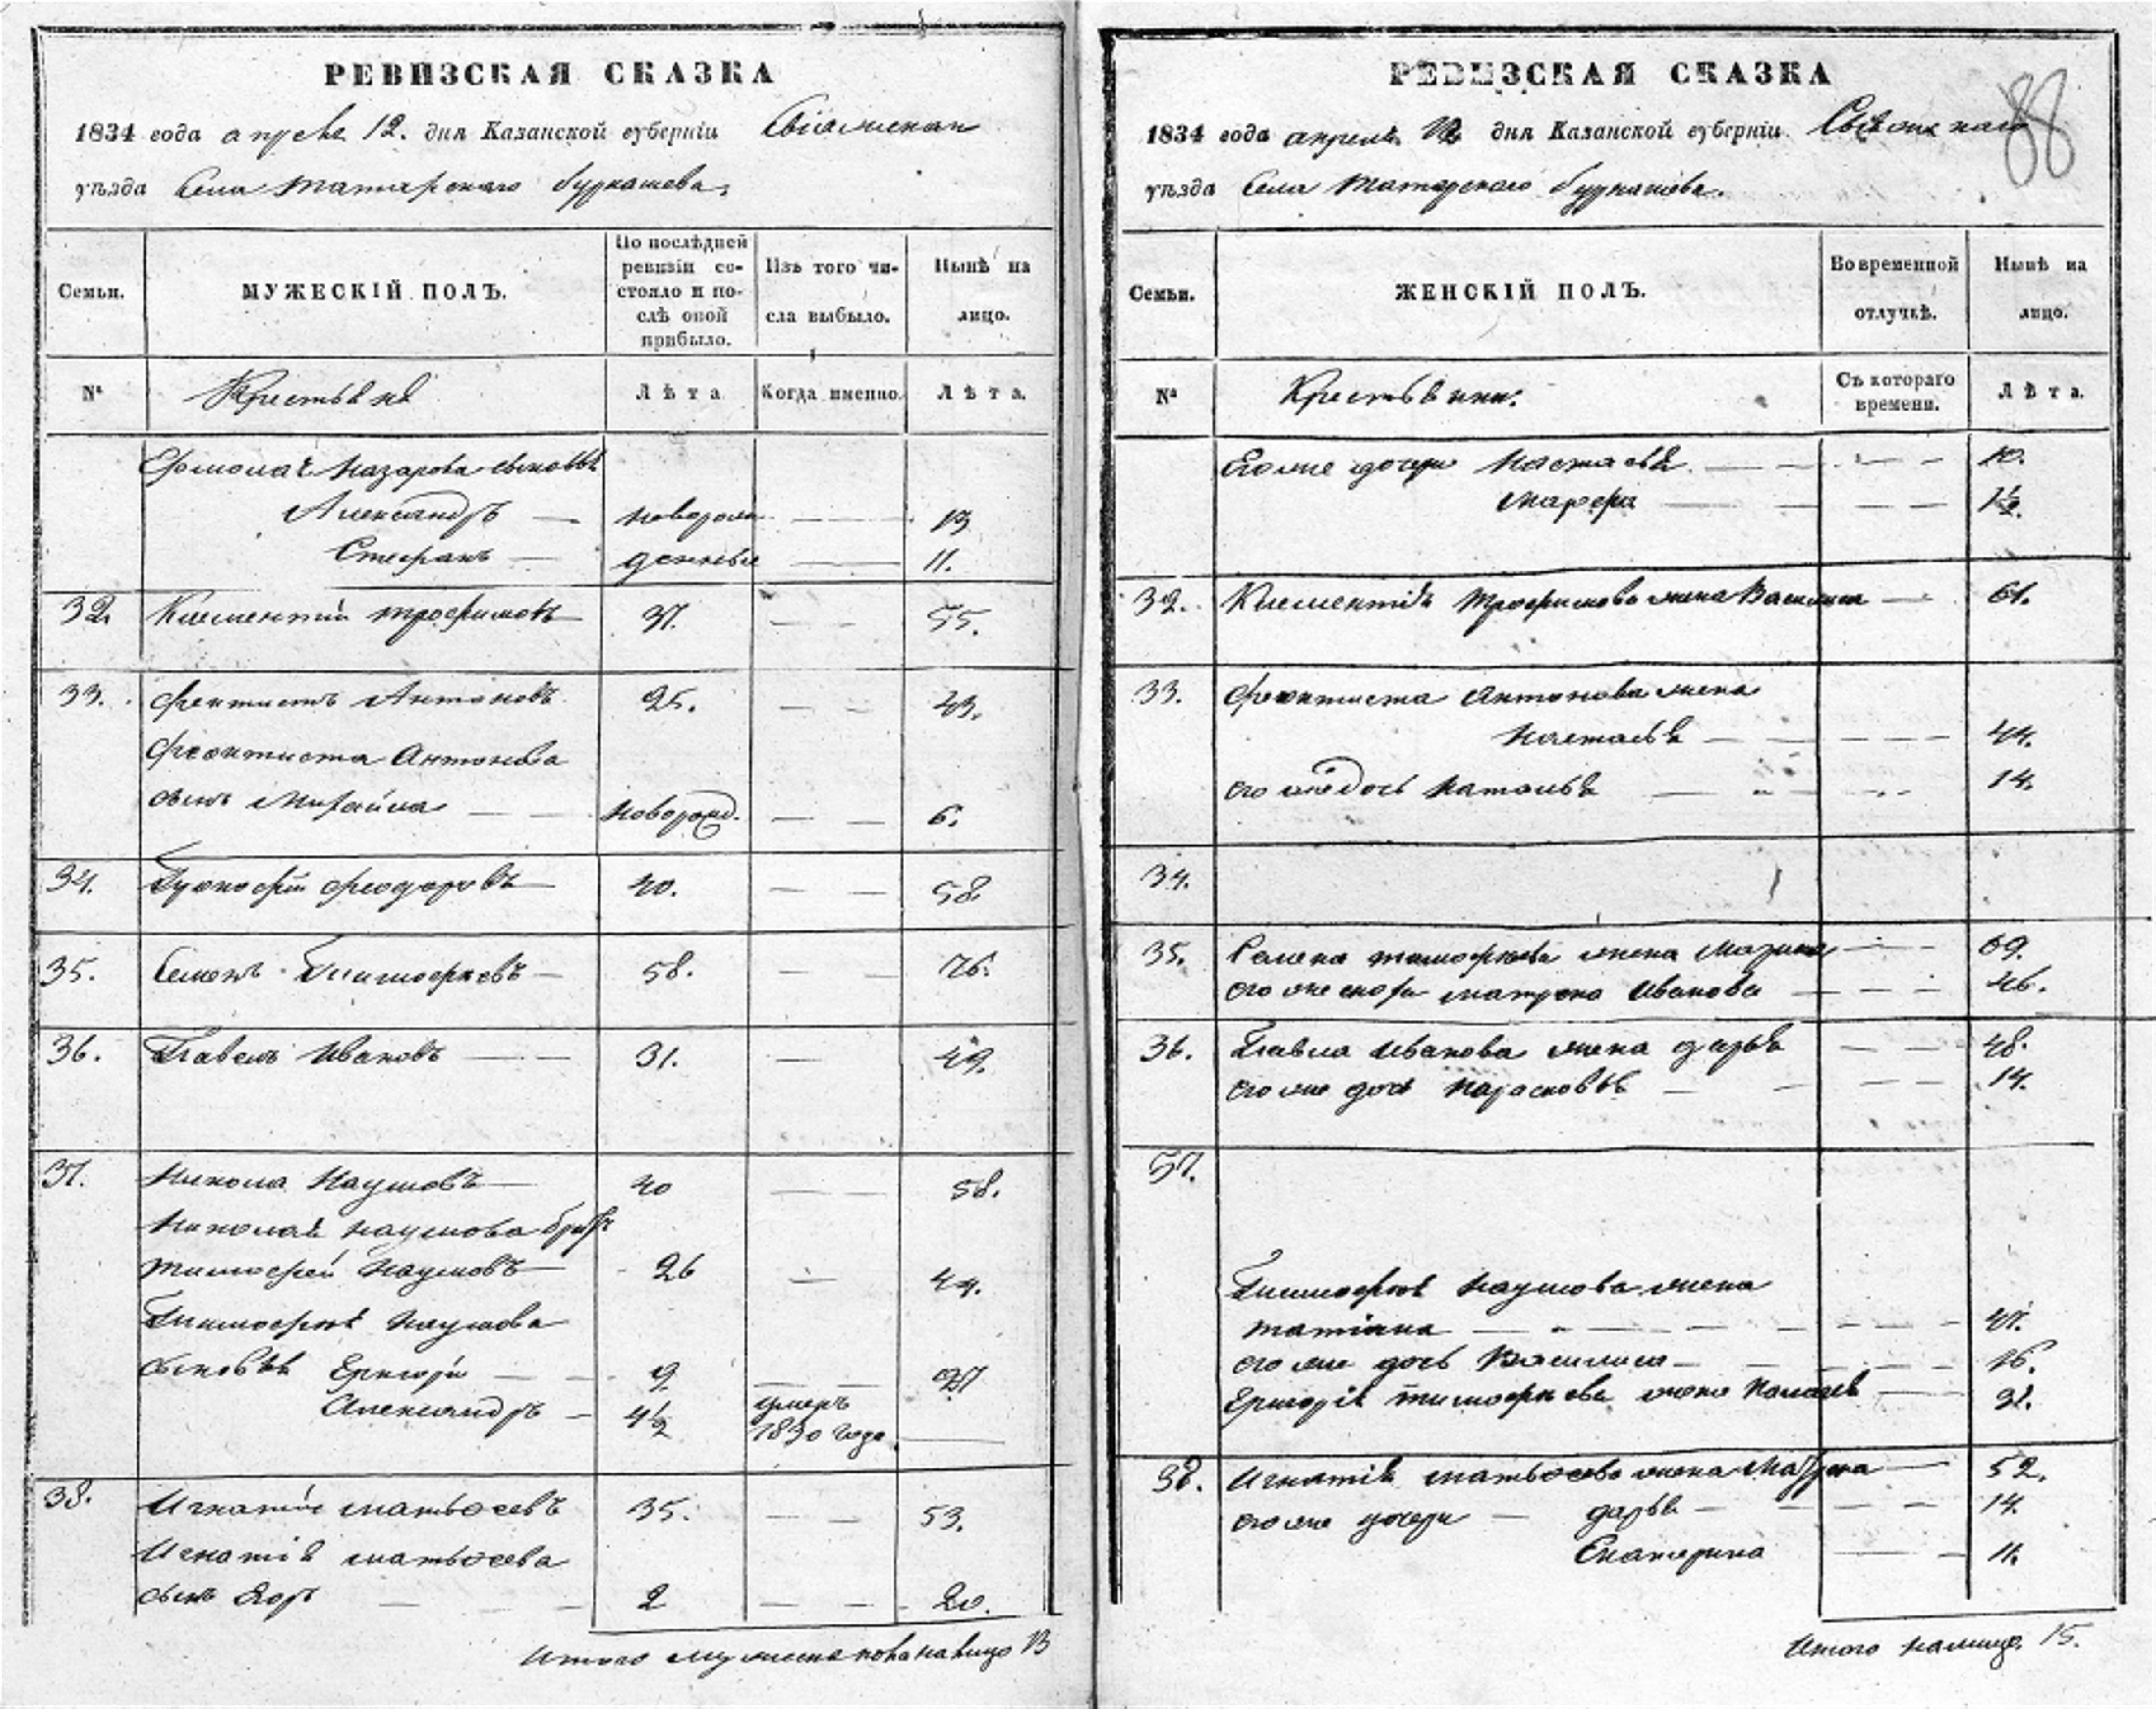 РЕВИЗСКАЯ СКАЗКА
1834 года апреля 12. дня Казанской губерніи Свіяжскаго
уѣзда Села Татарскаго бурнашева,
Семьи.
МУЖЕСКІЙ ПОЛЪ.
По послѣдней ревизіи состояло и послѣ оной прибыло.
Изъ того числа выбыло.
Нынѣ на лицо.
№
Крестьяне
Лѣта
Когда именно.
Лѣта.
Ермолая Назарова сыновья
Александръ — новорож — 13
Стефанъ — денные — 11.
32. Климентий трофимовъ — 37. — — 55.
33. феоктистъ Антоновъ 25. — — 43.
феоктиста Антонова
сынъ Михайла — — новорожд. — — 6.
34. феодоровъ — 40. — — 58
35. Семенъ Тимофеевъ — 58. — — 76.
36. Павелъ Ивановъ — — 31. — 49.
37. Никола Наумовъ — 40 — — 58.
Николая наумова братъ
тимофей Наумовъ — 26 — 44.
Тимофея Наумова
сыновья Григорій — — 9. — — 27
Александръ — 4½ умеръ 1830 года —
38. Игнатій матвеевъ 35. — — 53.
Игнатія матвеева
сынъ Егоръ — — — 2 — — 20.
Итого мужеска пола налицо 13
РЕВИЗСКАЯ СКАЗКА
88
1834 года апреля 12 дня Казанской губерніи Свіяжскаго
уѣзда Села Татарскаго бурнашева.
Семьи.
ЖЕНСКІЙ ПОЛЪ.
Во временной отлучкѣ.
Нынѣ на лицо.
№
Крестьянки.
Съ котораго времени.
Лѣта.
Его же дочери Настасья — — — — 10.
Марфа — — — — 1½.
32. Климентія Трофимова жена Василиса — 61.
33. феоктиста Антонова жена
Настасья — — — — 44.
его же дочь Наталья — — — 14.
34.
35. Семена тимофеева жена Марина — — 69.
его же сноха матрена Иванова — — — 46.
36. Павла Иванова жена дарья — — — 48.
его же дочь Парасковья — — — — 14.
37.
Тимофея Наумова жена
татіана — — — — — — — 47.
его же дочь Василиса — — — — 16.
Григорія тимофеева жена — 31.
38. Игнатія матвеева жена — 52.
его же дочери — дарья — — — — 14.
Екатерина — — 11.
Итого налицо. 15.